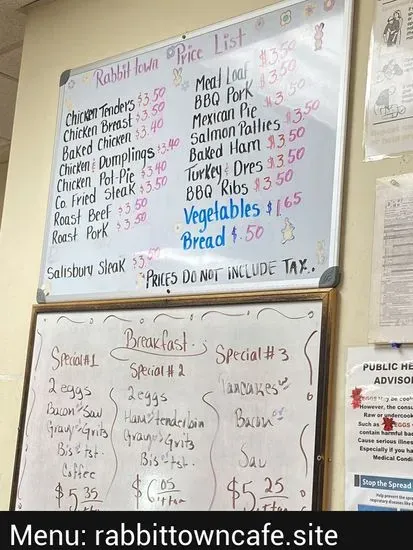 Rabbittown Price List
Chicken Tenders $3.50
Chicken Breast $3.50
Baked Chicken $3.40
Chicken & Dumplings $3.40
Chicken Pot-Pie $3.40
Co. Fried Steak $3.50
Roast Beef $3.50
Roast Pork $3.50
Salisbury Steak $3.50
Meat Loaf $3.50
BBQ Pork $3.50
Mexican Pie $3.50
Salmon Patties $3.50
Baked Ham $3.50
Turkey & Dres $3.50
BBQ Ribs $3.50
Vegetables $1.65
Bread $.50
PRICES DO NOT INCLUDE TAX..
Breakfast
Special #1
2 eggs
Bacon or Sau
Gravy or Grits
Bis or tst.
Coffee
$5.35
Special #2
2 eggs
Ham or tenderloin
Gravy or Grits
Bis or tst.
$6.05
Special #3
Pancakes w/
Bacon or
Sau
$5.25
PUBLIC HE
ADVISO
EGGS may be cook
However, the cons
Raw or undercook
Such as EGGS
contain harmful ba
Cause serious illnes
Especially if you ha
Medical Condi
Stop the Spread
Help prevent the spre
respiratory diseases like
Menu: rabbittowncafe.site